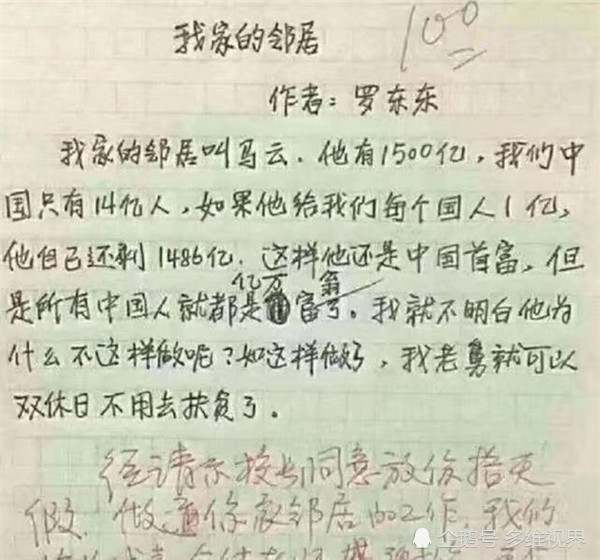 我家的邻居
100
作者：罗东东
我家的邻居叫马云．他有1500亿，我们中
国只有14亿人，如果他给我们每个国人1亿，
他自己还剩1486亿．这样他还是中国首富，但
亿万 翁
是所有中国人就都是富了。我就不明白他为
什么不这样做呢？如这样做了，我老舅就可以
双休日不用去扶贫了。
经请示校长同意放你拾天
假，做通你家邻居的工作，我们
企鹅号 多维视界